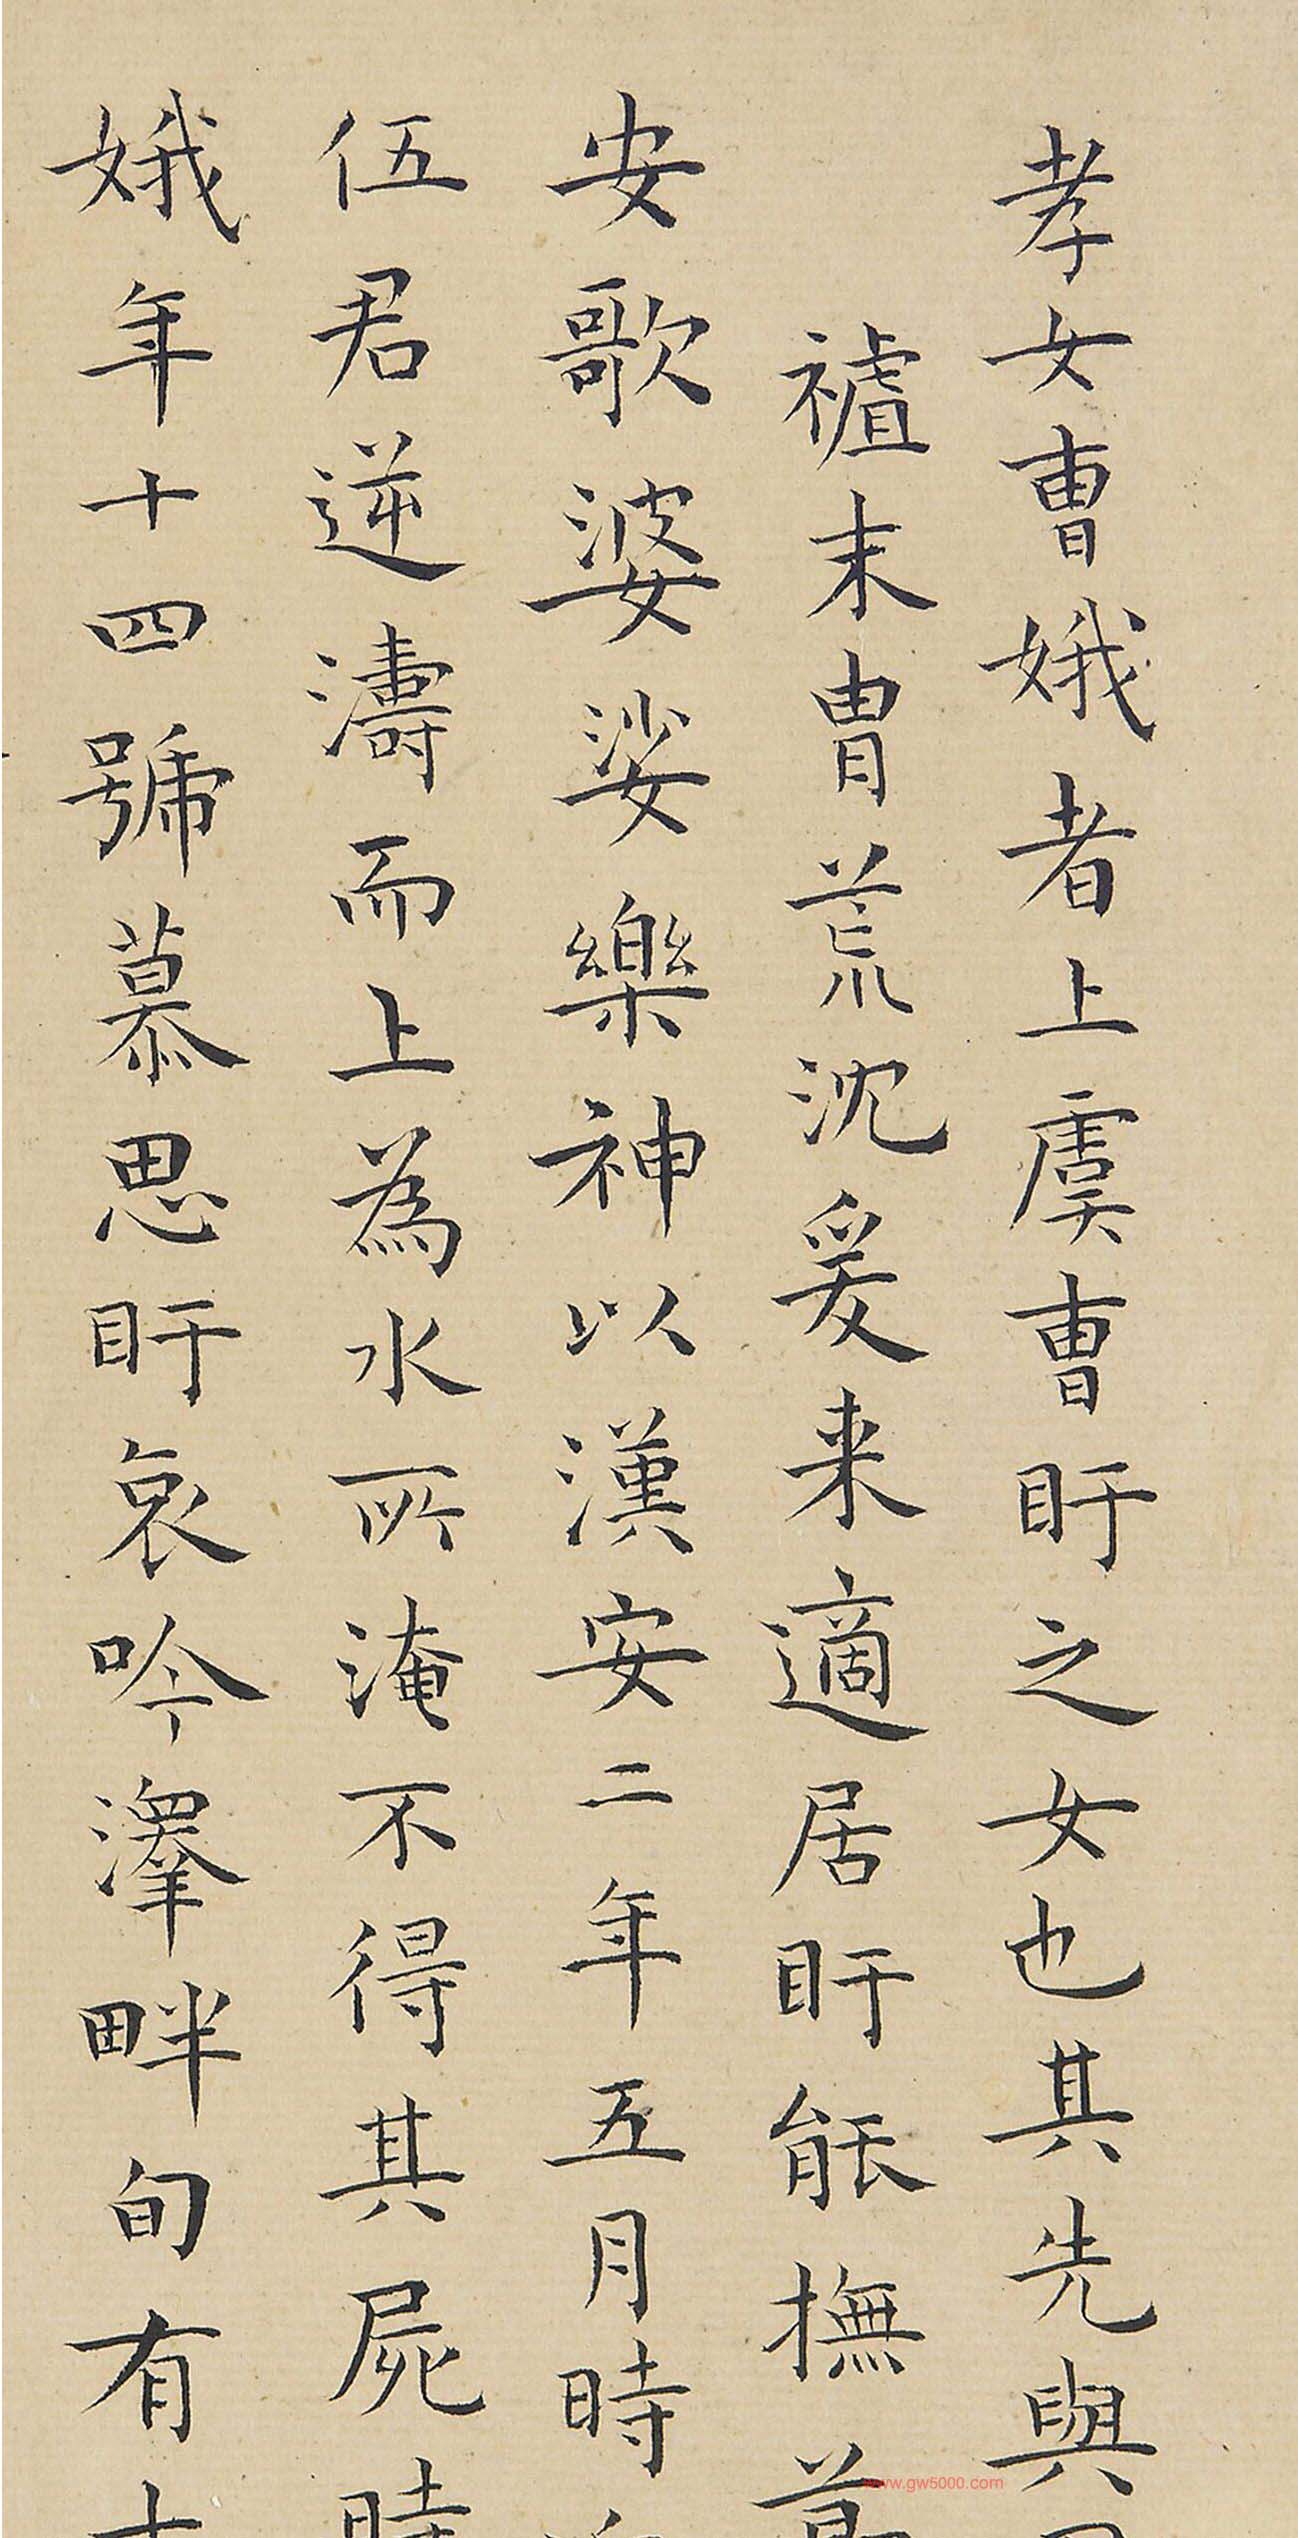 孝女曺娥者上虞曺盱之女也其先與
禇末胄荒沈爰来適居盱能撫
安歌婆娑樂神以漢安二年五月時
伍君逆濤而上為水所淹不得其屍時
娥年十四號慕思盱哀吟澤畔旬有
www.gw5000.com